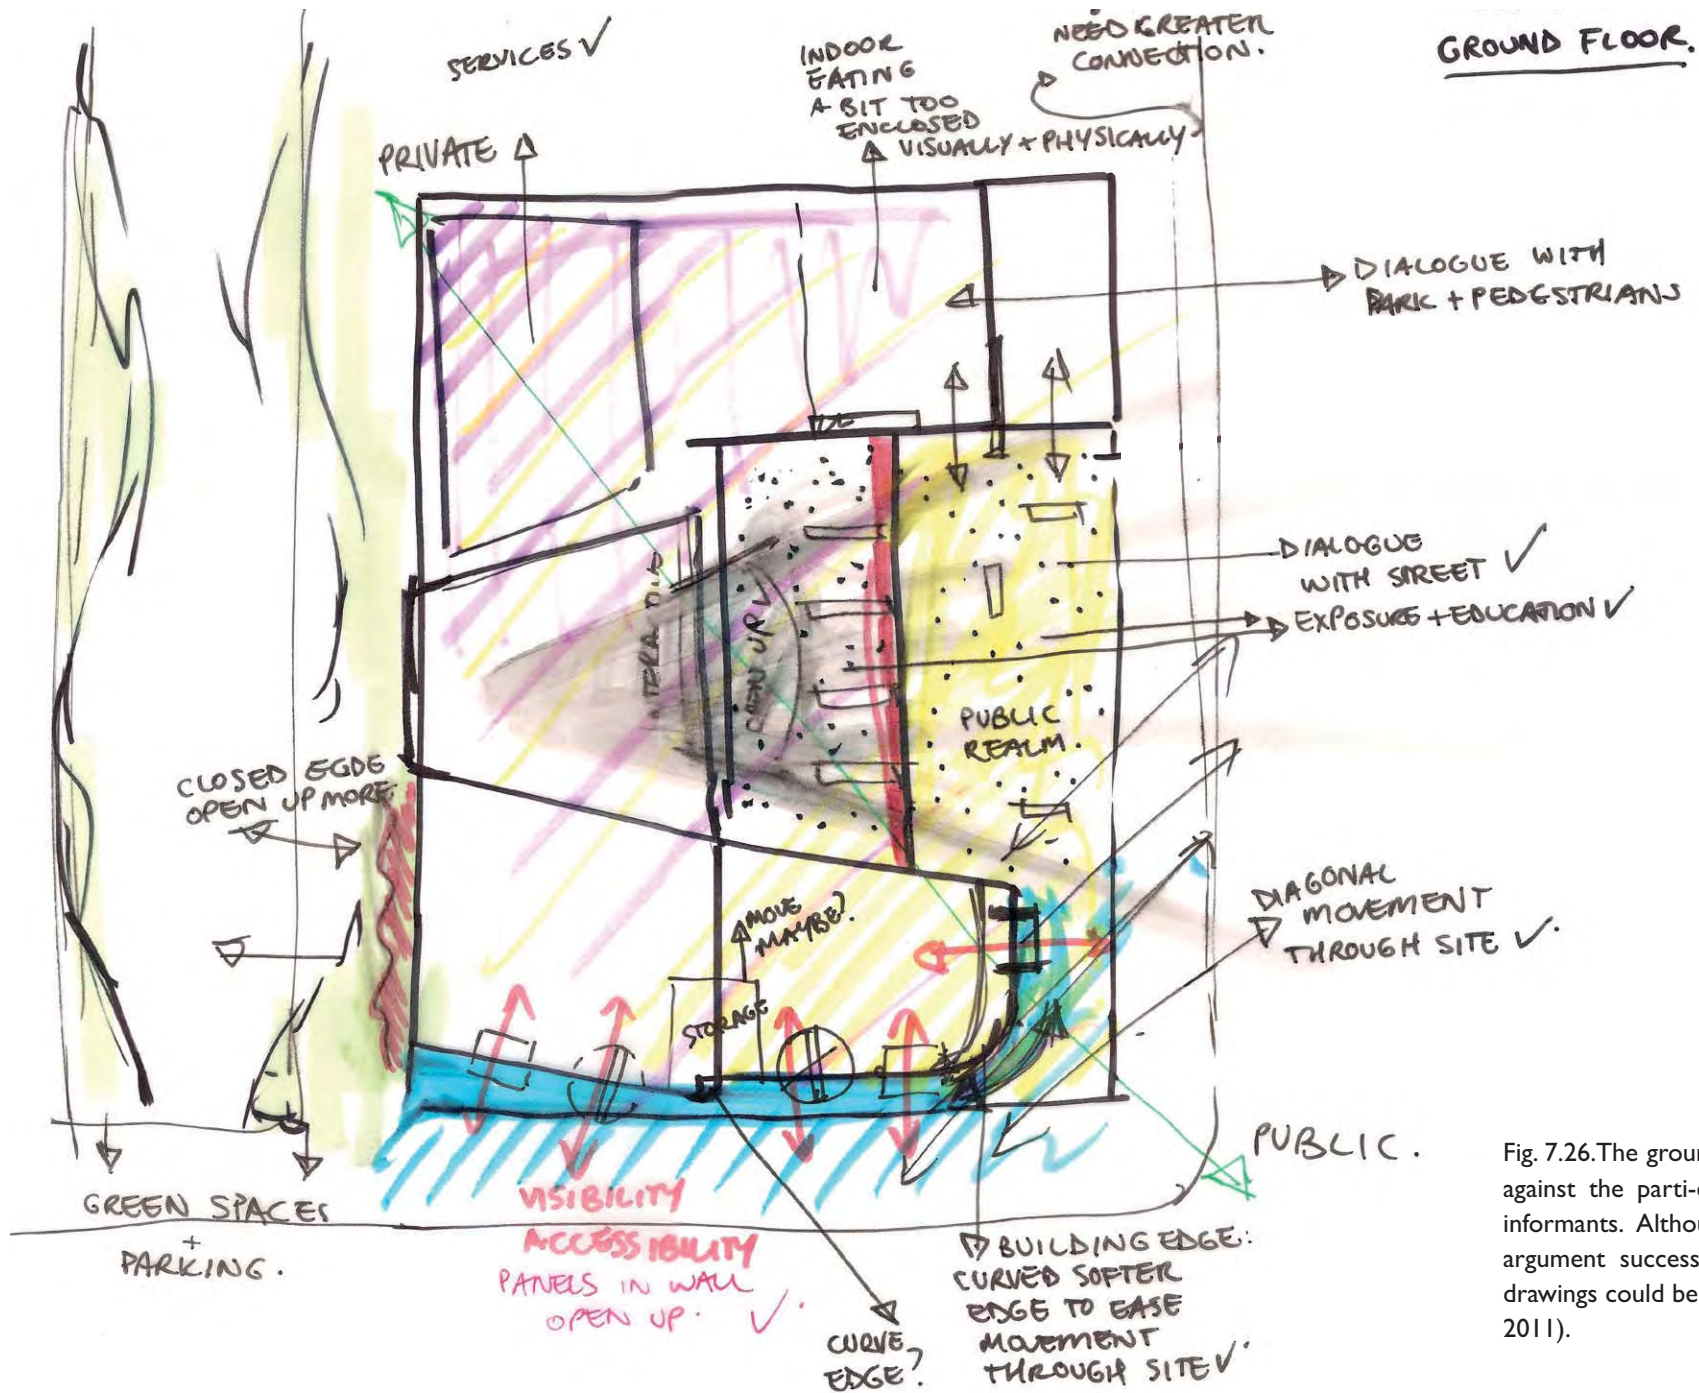 GROUND FLOOR.
SERVICES ✓
INDOOR
EATING
A BIT TOO
ENCLOSED
VISUALLY + PHYSICALLY
NEED GREATER
CONNECTION.
PRIVATE
DIALOGUE WITH
PARK + PEDESTRIANS
DIALOGUE
WITH STREET ✓
EXPOSURE + EDUCATION ✓
OPEN UP
PUBLIC
REALM.
CLOSED EGDE
OPEN UP MORE
MOVE
MAYBE?
STORAGE
DIAGONAL
MOVEMENT
THROUGH SITE ✓.
PUBLIC.
GREEN SPACES
+
PARKING.
VISIBILITY
ACCESSIBILITY
PANELS IN WALL
OPEN UP. ✓.
CURVE
EDGE?
BUILDING EDGE:
CURVED SOFTER
EDGE TO EASE
MOVEMENT
THROUGH SITE ✓.
Fig. 7.26.The groun
against the parti-
informants. Althou
argument success
drawings could be
2011).